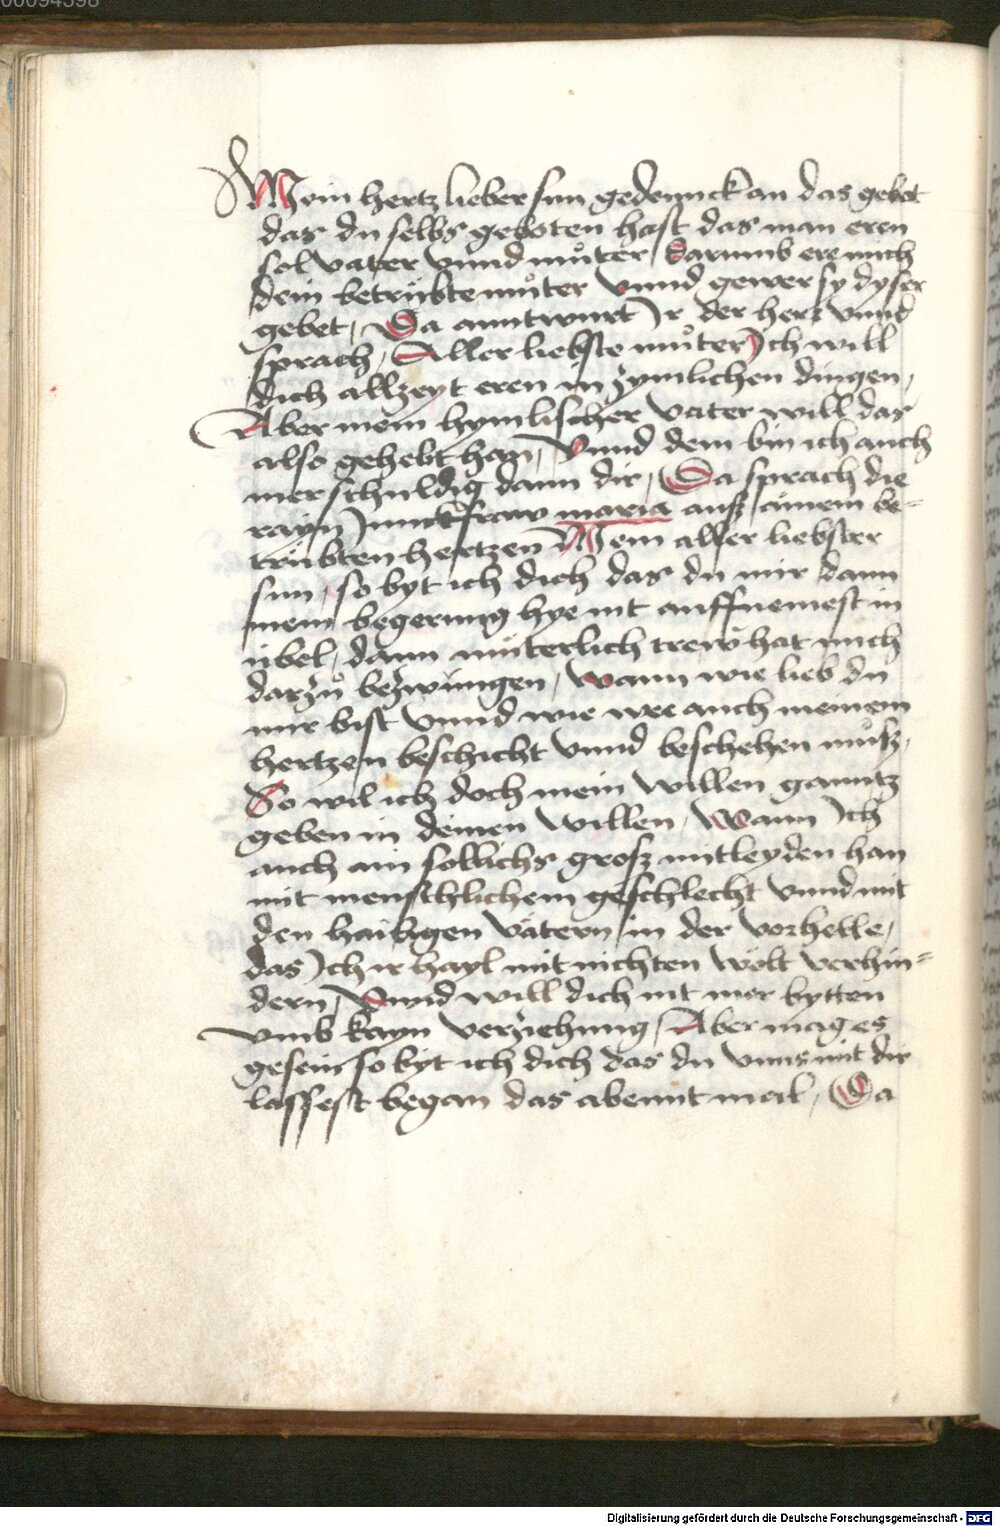 00094398
Mein hertz lieber sun gedennck an das gebot
das du selbs geboten hast das man eren
sol vater vnnd můter / darumb ere mich
dein betrübte můter vnnd gewer sy dyser
gebet / Da anntwurt Jr der herr vnnd
sprach / Aller liebste můter Jch will
dich allzeyt eren in zymlichen dingen /
Aber mein hymlischer vater will das
also gehebt han / Vnnd dem bin ich auch
mer schuldig dann dir / Da sprach die
rayn Junckfraw maria ausz ainem be=
trübten hertzen Mein aller liebster
sun / so byt ich dich das du mir dann
mein begerung hye nit auffnemest in
übel / dann müterlich trew hat mich
darzů bezwungen / wann wie lieb du
mir bist vnnd wie wee auch meinem
hertzen beschicht vnnd beschehen můsz /
So wil ich doch mein willen ganntz
geben in deinen willen / Wann Jch
auch ain sollichs grosz mitleyden han
mit menschlichem geschlecht vnnd mit
den hailigen vätern in der vorhelle /
das Jch ir hayl mit nichten wölt verhin=
dern / Vnnd will dich nit mer bytten
vmb kayn verziehung / Aber mag es
gesein so byt ich dich das du vnns mit dir
lassest began das abennt mal / Da
Digitalisierung gefördert durch die Deutsche Forschungsgemeinschaft - DFG